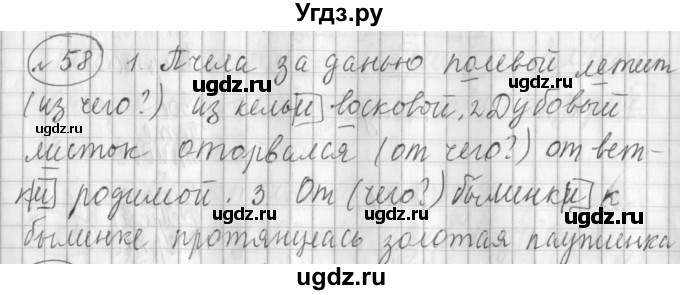 Угдз.ру
№58 1. Пчела за данью полевой летит
(из чего?) из кельи восковой, 2 Дубовый
листок оторвался (от чего?) от вет-
ки родимой. 3 От (чего?) былинки к
былинке протянулась золотая паутинка
ugdz.ru ugdz.ru ugdz.ru ugdz.ru
ugdz.ru ugdz.ru ugdz.ru
ugdz.ru ugdz.ru ugdz.ru ugdz.ru
Угдз.ру